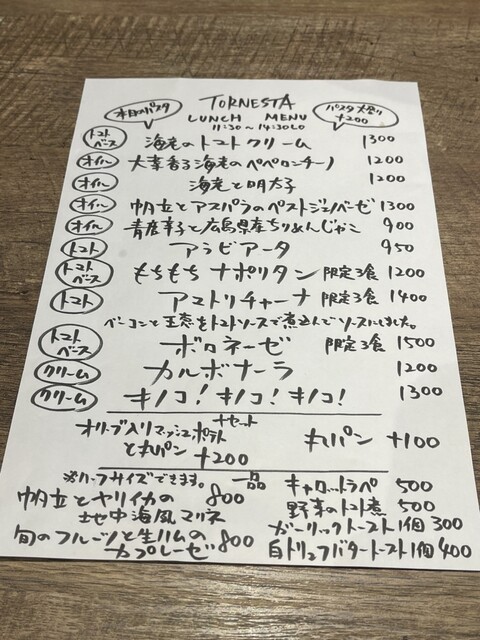 TORNESTA
本日のパスタ
LUNCH MENU
パスタ大盛り
+200
11:30～14:30LO
トマトベース 海老のトマトクリーム 1300
オイル 大葉香る海老のペペロンチーノ 1200
オイル 海老と明太子 1200
オイル 帆立とアスパラのペストジェノベーゼ 1300
オイル 青唐辛子と広島県産ちりめんじゃこ 900
トマト アラビアータ 950
トマトベース もちもちナポリタン 限定3食 1200
トマト アマトリチャーナ 限定3食 1400
ベーコンと玉葱をトマトソースで煮込んでソースにしました。
トマトベース ボロネーゼ 限定3食 1500
クリーム カルボナーラ 1200
クリーム キノコ!キノコ!キノコ! 1300
+セット
オリーブ入りマッシュポテト
と丸パン +200
丸パン +100
※ハーフサイズできます。
一品
帆立とヤリイカの 800
地中海風マリネ
旬のフルーツと生ハムの 800
カプレーゼ
キャロットラペ 500
野菜のトマト煮 500
ガーリックトースト1個 300
白トリュフバタートースト1個 400